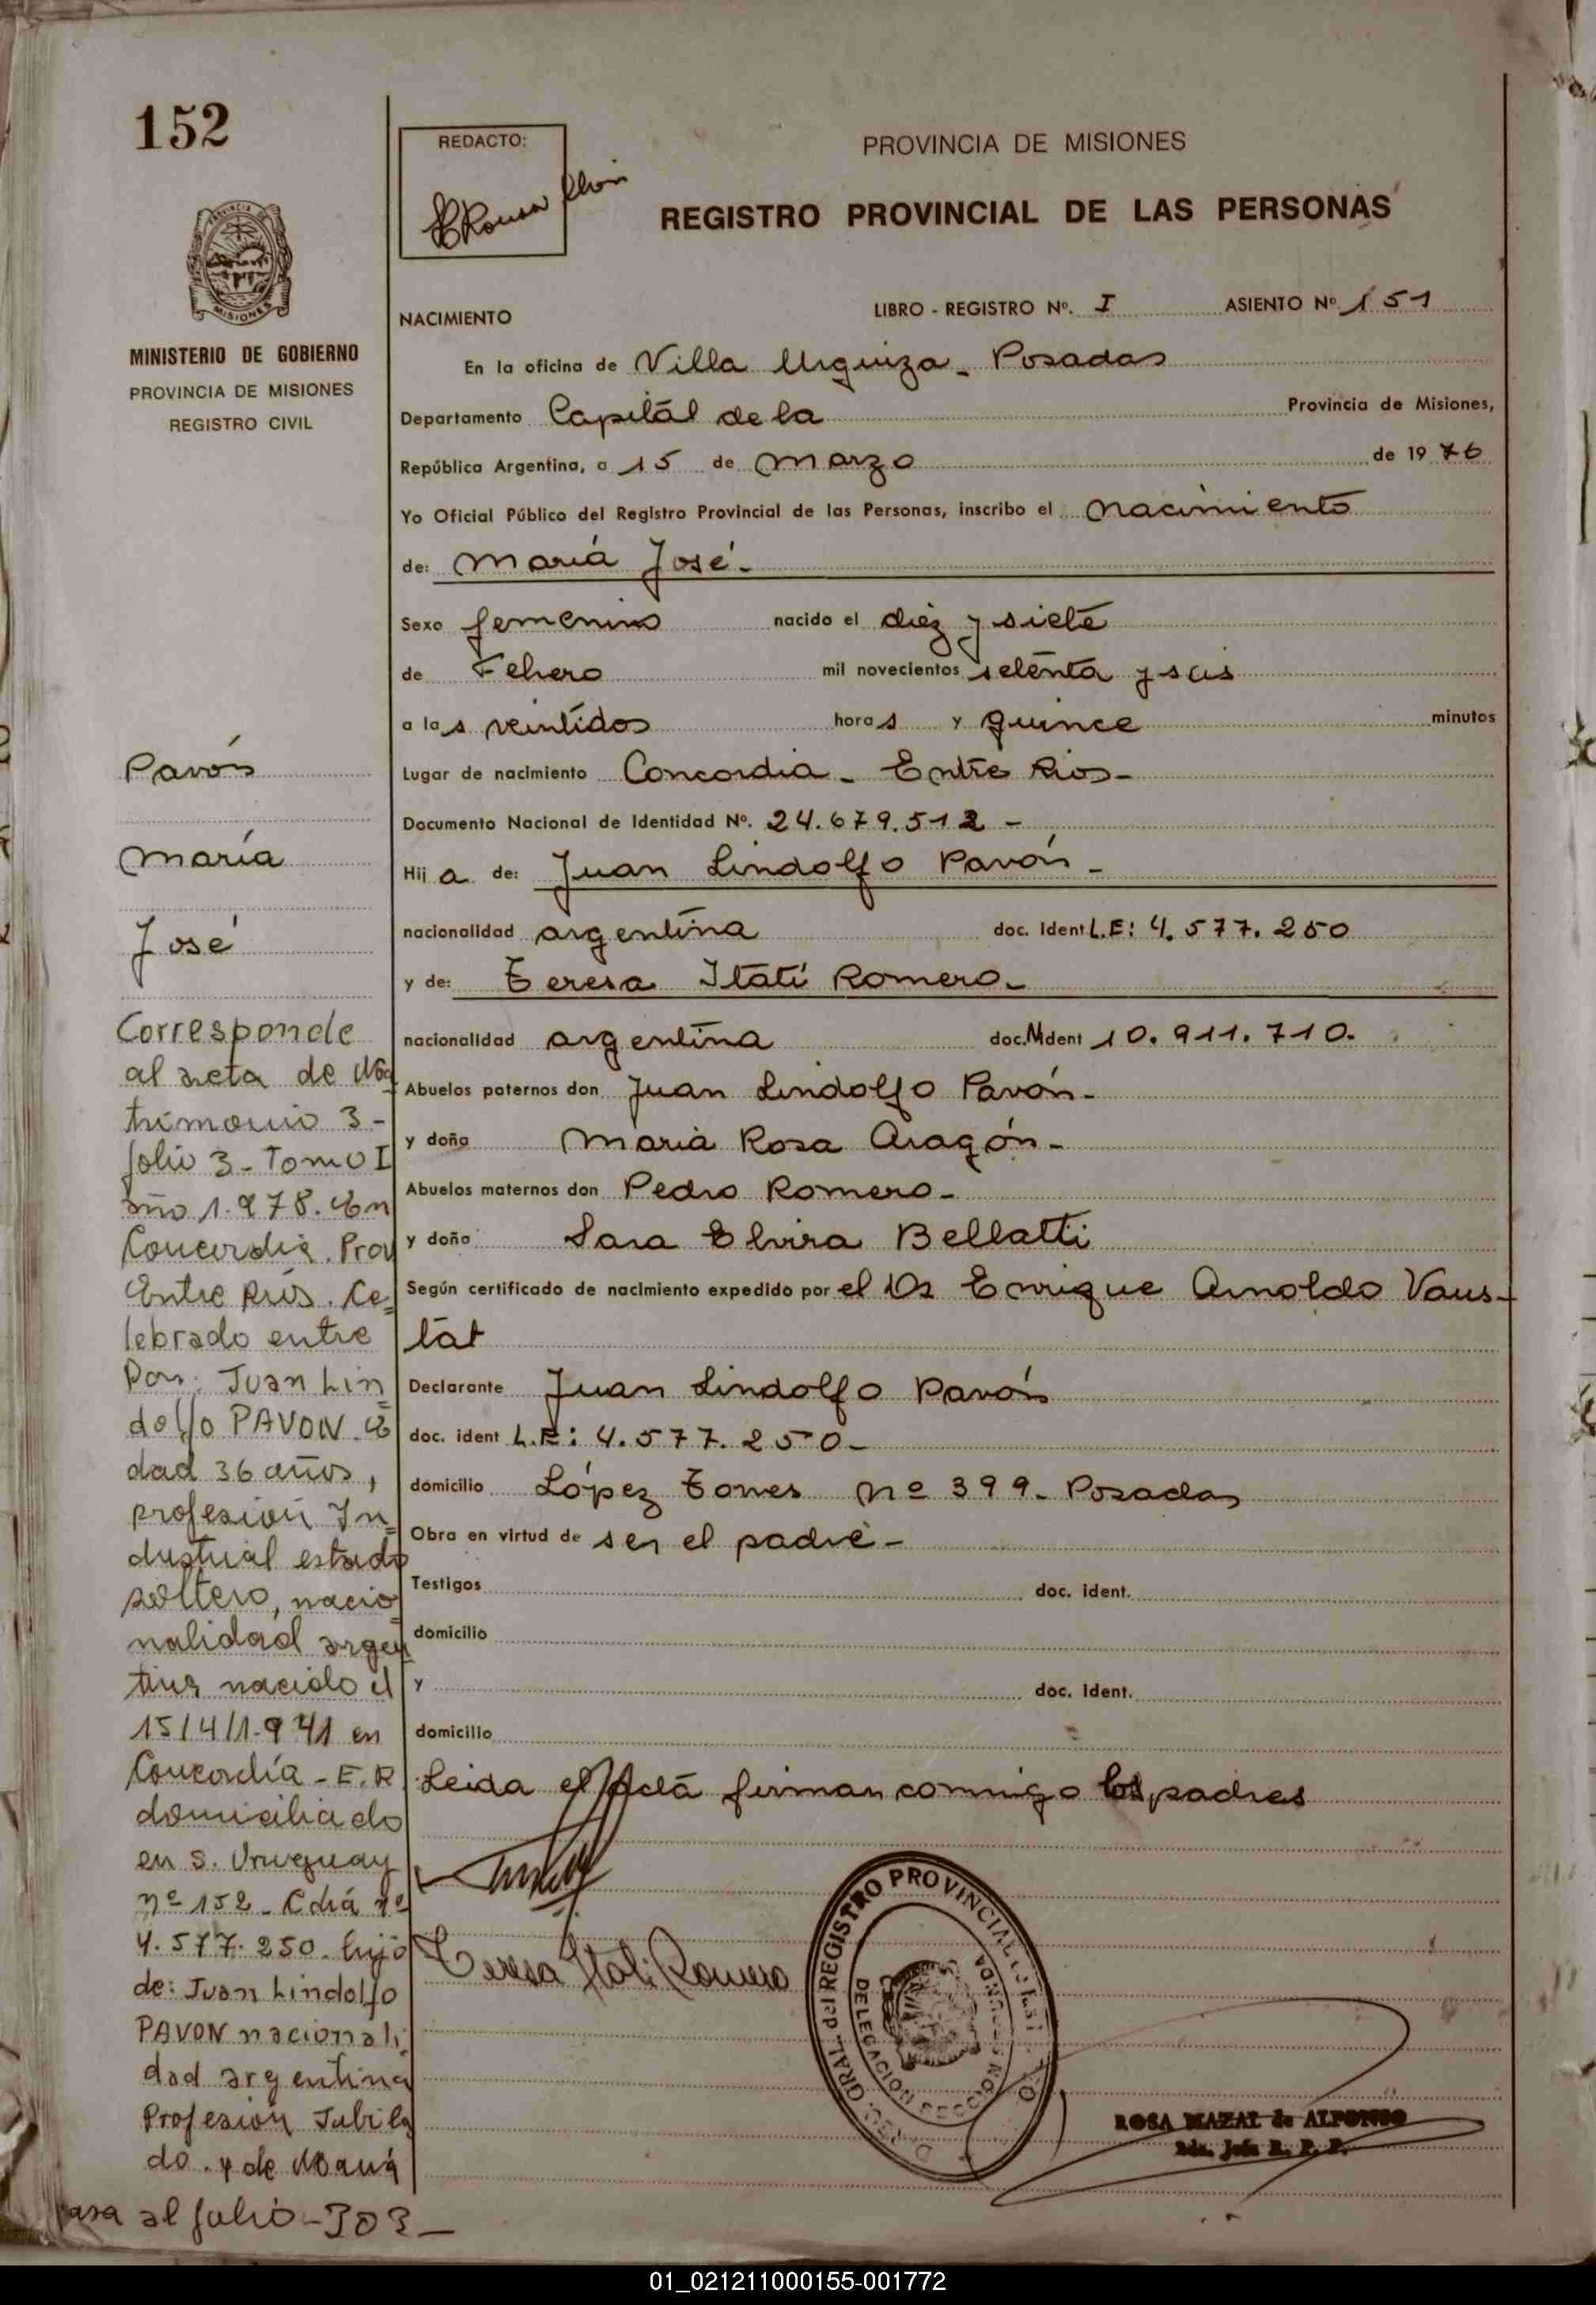 152
REDACTO:
PROVINCIA DE MISIONES
REGISTRO PROVINCIAL DE LAS PERSONAS
MISIONES
MINISTERIO DE GOBIERNO
PROVINCIA DE MISIONES
REGISTRO CIVIL
NACIMIENTO
LIBRO - REGISTRO Nº. I ASIENTO Nº. 151
En la oficina de Villa Urquiza - Posadas
Departamento Capital de la Provincia de Misiones,
República Argentina, a 15 de marzo de 1976
Yo Oficial Público del Registro Provincial de las Personas, inscribo el nacimiento
de: María José -
Sexo femenino nacido el diez y siete
de Febrero mil novecientos setenta y seis
a las veintidos horas y quince minutos
Lugar de nacimiento Concordia - Entre Rios -
Documento Nacional de Identidad Nº. 24.679.512 -
Hija de: Juan Lindolfo Pavón -
nacionalidad argentina doc. ident L.E: 4.577.250
y de: Teresa Itatí Romero -
nacionalidad argentina doc. ident 10.911.710.
Abuelos paternos don Juan Lindolfo Pavón -
y doña María Rosa Aragón -
Abuelos maternos don Pedro Romero -
y doña Sara Elvira Bellatti
Según certificado de nacimiento expedido por el Dr Enrique Arnoldo Vaus-
tat
Declarante Juan Lindolfo Pavón
doc. ident L.E: 4.577.250 -
domicilio López Torres nº 399 - Posadas
Obra en virtud de ser el padre -
Testigos doc. ident.
domicilio
y doc. ident.
domicilio
Leida el acta firman conmigo los padres
Teresa Itatí Romero
GRAL. del REGISTRO PROVINCIAL
DELEGACION SECCION
ROSA MAZAL de ALFONSO
Jefa R. P. P.
Pavón
María
José
Corresponde
al acta de Ma
trimonio 3 -
folio 3 - Tomo I
año 1.978. En
Concordia. Prov
Entre Ríos. Ce=
lebrado entre
Don: Juan Lin=
dolfo PAVON. E
dad 36 años,
profesión In=
dustrial estado
soltero, nacio=
nalidad argen
tina nacido el
15/4/1.941 en
Concordia - E.R
domiciliado
en S. Uruguay
nº 152 - Cdia nº
4.577.250. hijo
de: Juan Lindolfo
PAVON nacionali
dad argentina
Profesión Jubila
do. y de María
Pasa al folio - 303 -
01_021211000155-001772